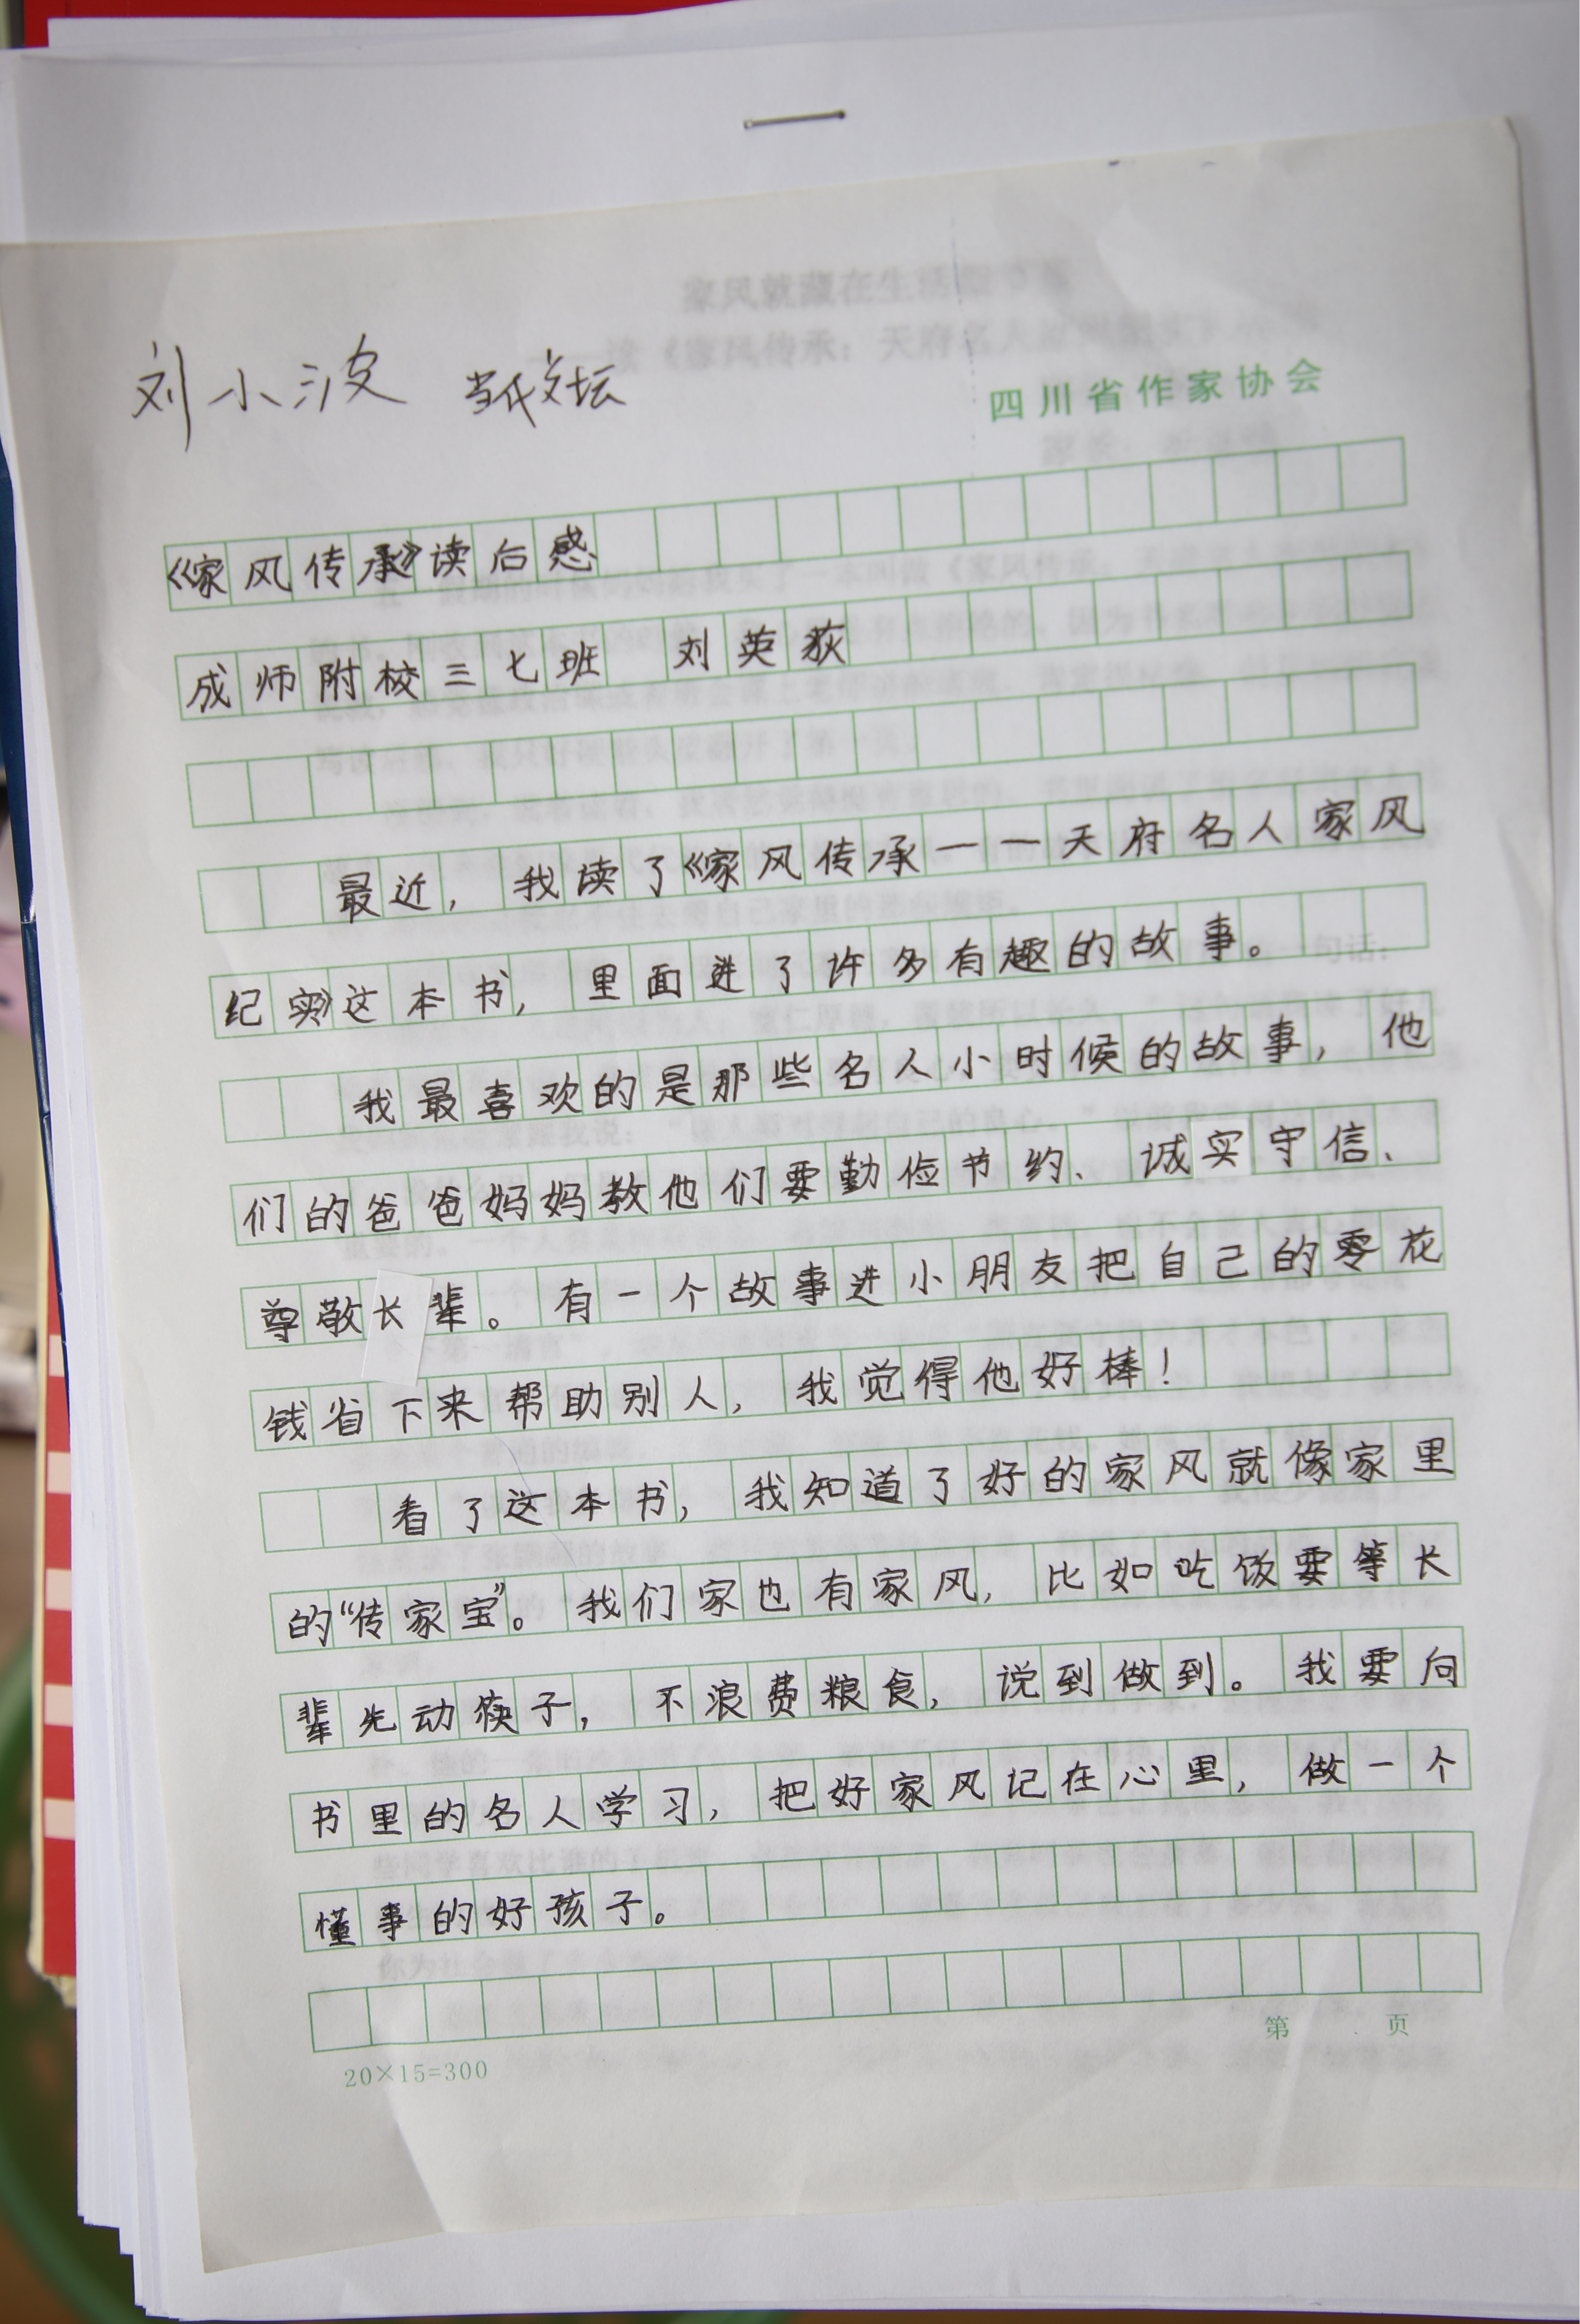 刘小波 当代文坛
四川省作家协会
《家风传承》读后感
成师附校三七班 刘英荻
最近，我读了《家风传承——天府名人家风
纪实》这本书，里面进了许多有趣的故事。
我最喜欢的是那些名人小时候的故事，他
们的爸爸妈妈教他们要勤俭节约、诚实守信、
尊敬长辈。有一个故事进小朋友把自己的零花
钱省下来帮助别人，我觉得他好棒！
看了这本书，我知道了好的家风就像家里
的“传家宝”。我们家也有家风，比如吃饭要等长
辈先动筷子，不浪费粮食，说到做到。我要向
书里的名人学习，把好家风记在心里，做一个
懂事的好孩子。
第 页
20×15=300